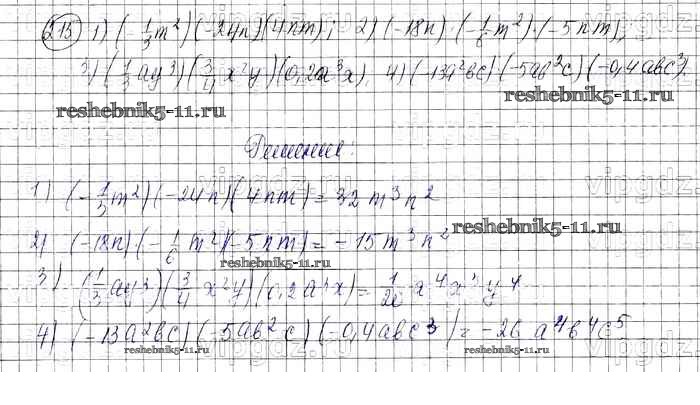 215 1) (-1/3 m²)(-24n)(4nm); 2) (-18n)·(-1/6 m²)·(-5nm);
3) (1/3 ay³)(3/4 x²y)(0,2a³x). 4) (-13a²bc)·(-5ab²c)(-0,4abc³).
reshebnik5-11.ru reshebnik5-11.ru
Решение:
1) (-1/3 m²)(-24n)(4nm) = 32m³n²
reshebnik5-11.ru
2) (-18n)·(-1/6 m²)(-5nm) = -15m³n²
reshebnik5-11.ru
3) (1/3 ay³)(3/4 x²y)(0,2a³x) = 1/20 x⁴x³y⁴
4) (-13a²bc)(-5ab²c)(-0,4abc³) = -26a⁴b⁴c⁵
reshebnik5-11.ru reshebnik5-11.ru
vipgdz.ru